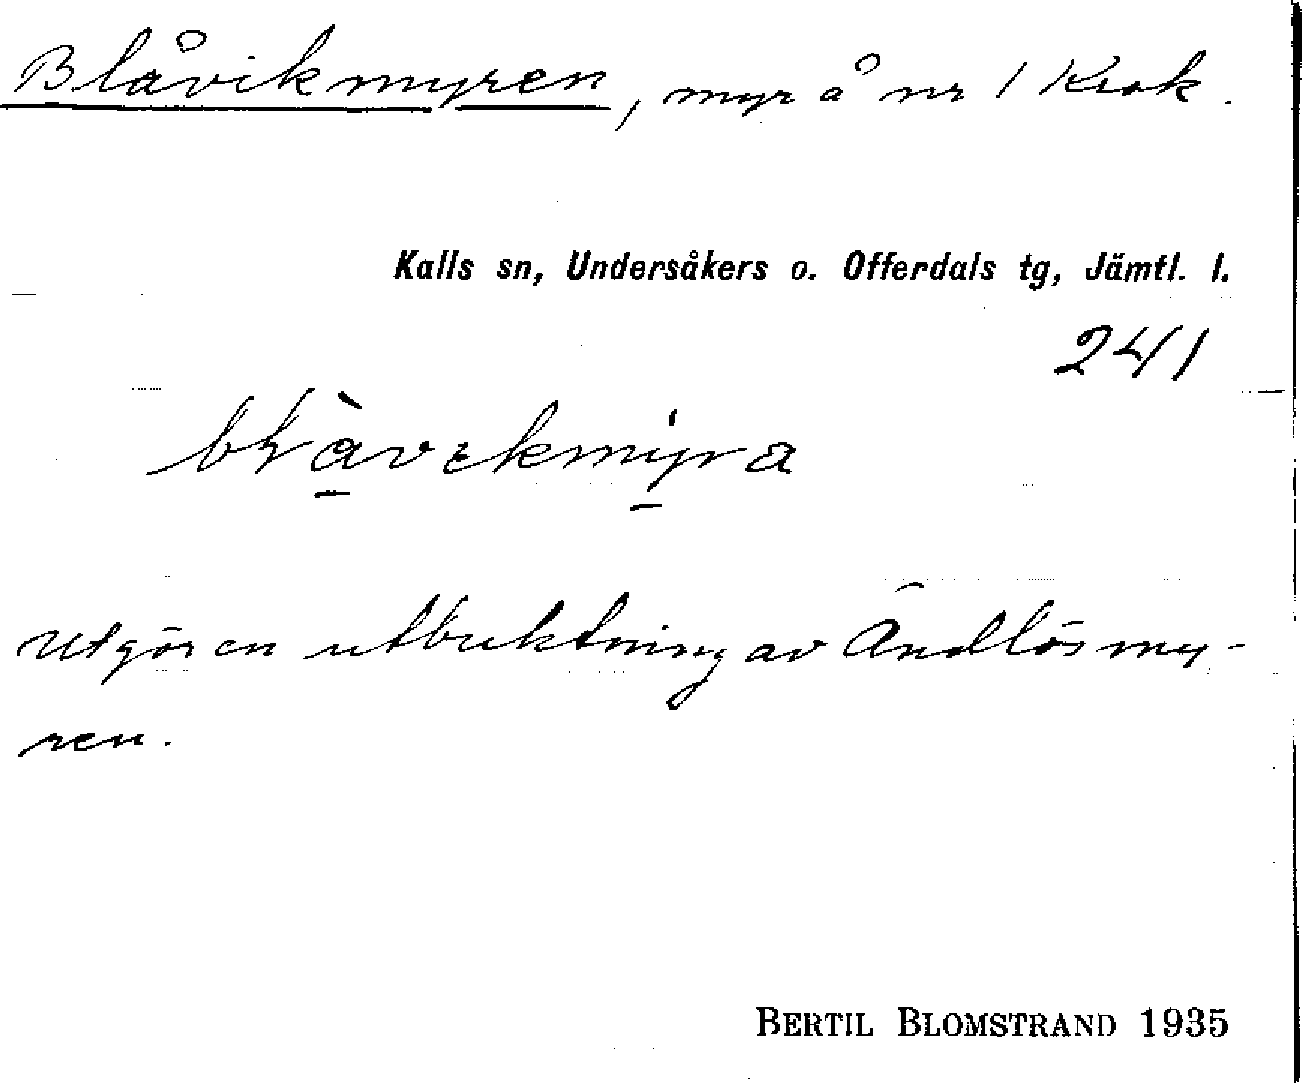 Blåvikmyren, myr å nr 1 Krok.
Kalls sn, Undersåkers o. Offerdals tg, Jämtl. l.
241
Utgör en utbuktning av Ändlösmy-
ren.
BERTIL BLOMSTRAND 1935